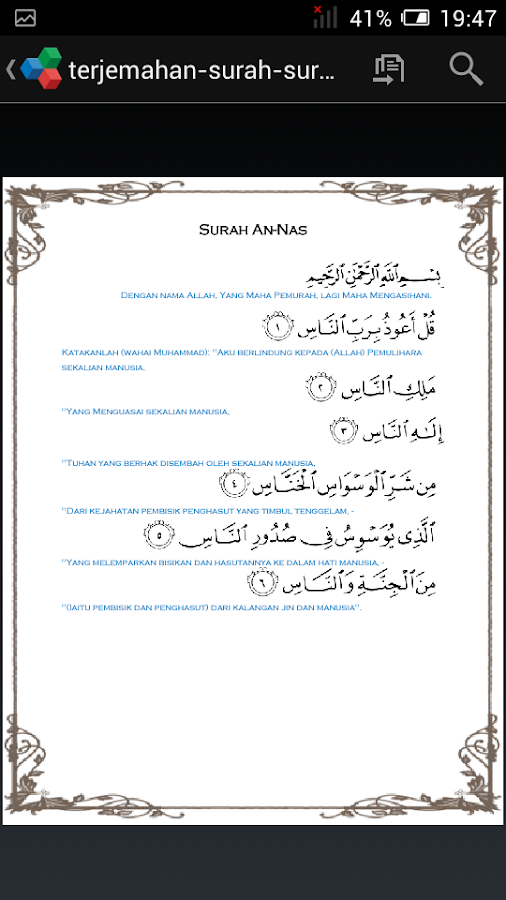 41% 19:47
terjemahan-surah-sur...
Surah An-Nas
بِسْمِ اللَّهِ الرَّحْمَٰنِ الرَّحِيمِ
Dengan nama Allah, Yang Maha Pemurah, lagi Maha Mengasihani.
قُلْ أَعُوذُ بِرَبِّ النَّاسِ ١
Katakanlah (wahai Muhammad): "Aku berlindung kepada (Allah) Pemulihara
sekalian manusia.
مَلِكِ النَّاسِ ٢
"Yang Menguasai sekalian manusia,
إِلَٰهِ النَّاسِ ٣
"Tuhan yang berhak disembah oleh sekalian manusia,
مِن شَرِّ الْوَسْوَاسِ الْخَنَّاسِ ٤
"Dari kejahatan pembisik penghasut yang timbul tenggelam, -
الَّذِي يُوَسْوِسُ فِي صُدُورِ النَّاسِ ٥
"Yang melemparkan bisikan dan hasutannya ke dalam hati manusia, -
مِنَ الْجِنَّةِ وَالنَّاسِ ٦
"(Iaitu pembisik dan penghasut) dari kalangan jin dan manusia".